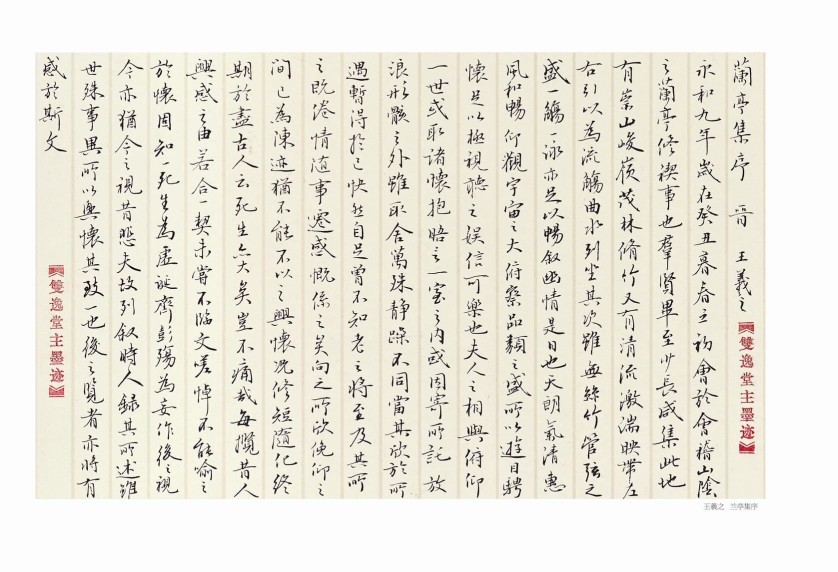 蘭亭集序 晉 王羲之
雙逸堂主墨迹
永和九年歲在癸丑暮春之初會於會稽山陰
之蘭亭修禊事也羣賢畢至少長咸集此地
有崇山峻嶺茂林脩竹又有清流激湍映帶左
右引以為流觴曲水列坐其次雖無絲竹管弦之
盛一觴一詠亦足以暢敘幽情是日也天朗氣清惠
風和暢仰觀宇宙之大俯察品類之盛所以遊目騁
懷足以極視聽之娛信可樂也夫人之相與俯仰
一世或取諸懷抱晤言一室之內或因寄所託放
浪形骸之外雖取舍萬殊靜躁不同當其欣於所
遇暫得於己快然自足曾不知老之將至及其所
之既倦情隨事遷感慨係之矣向之所欣俛仰之
間已為陳迹猶不能不以之興懷況修短隨化終
期於盡古人云死生亦大矣豈不痛哉每攬昔人
興感之由若合一契未嘗不臨文嗟悼不能喻之
於懷固知一死生為虛誕齊彭殤為妄作後之視
今亦猶今之視昔悲夫故列敘時人錄其所述雖
世殊事異所以興懷其致一也後之覽者亦將有
感於斯文
雙逸堂主墨迹
王羲之 兰亭集序